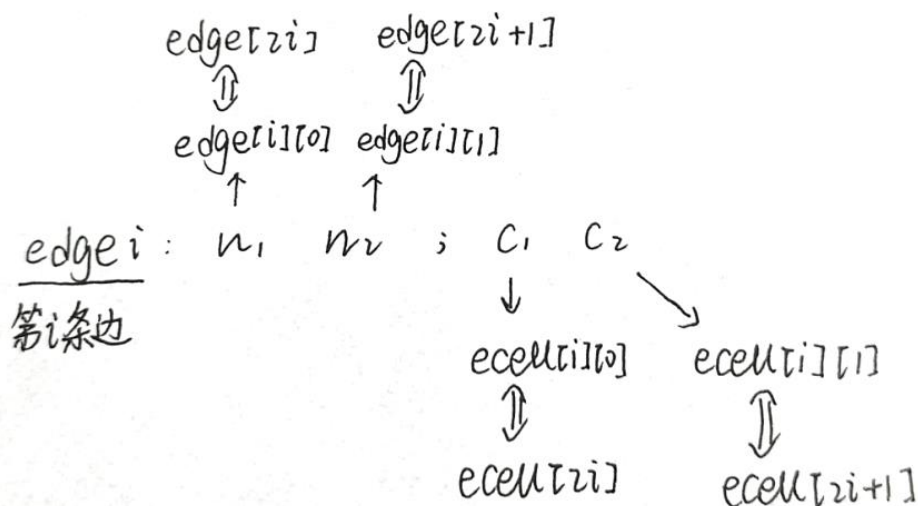 edge[2i] edge[2i+1]
⇕ ⇕
edge[i][0] edge[i][1]
↑ ↑
edge i : n₁ n₂ ; c₁ c₂
第i条边
↓ ↘
ecell[i][0] ecell[i][1]
⇕ ⇕
ecell[2i] ecell[2i+1]